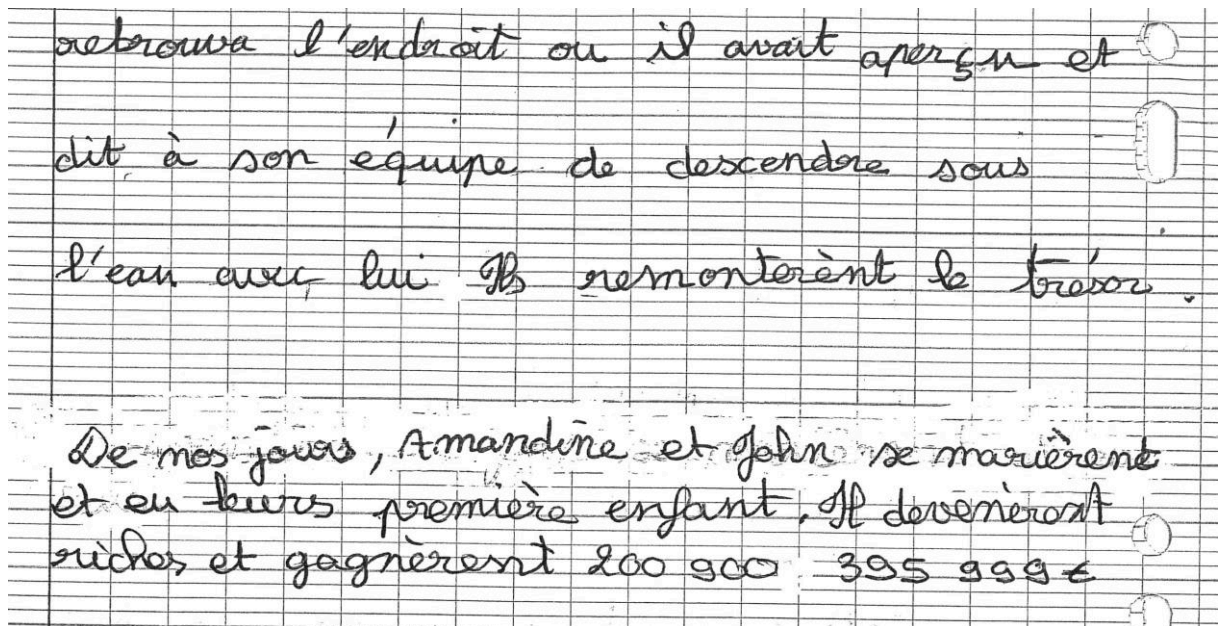 retrouva l'endroit ou il avait aperçu et
dit à son équipe de descendre sous
l'eau avec lui Ils remonterènt le trésor.
De nos jours, Amandine et John se marièrent
et eu leurs première enfant. Il devenèront
riches et gagnèrent 200 900 395 999€